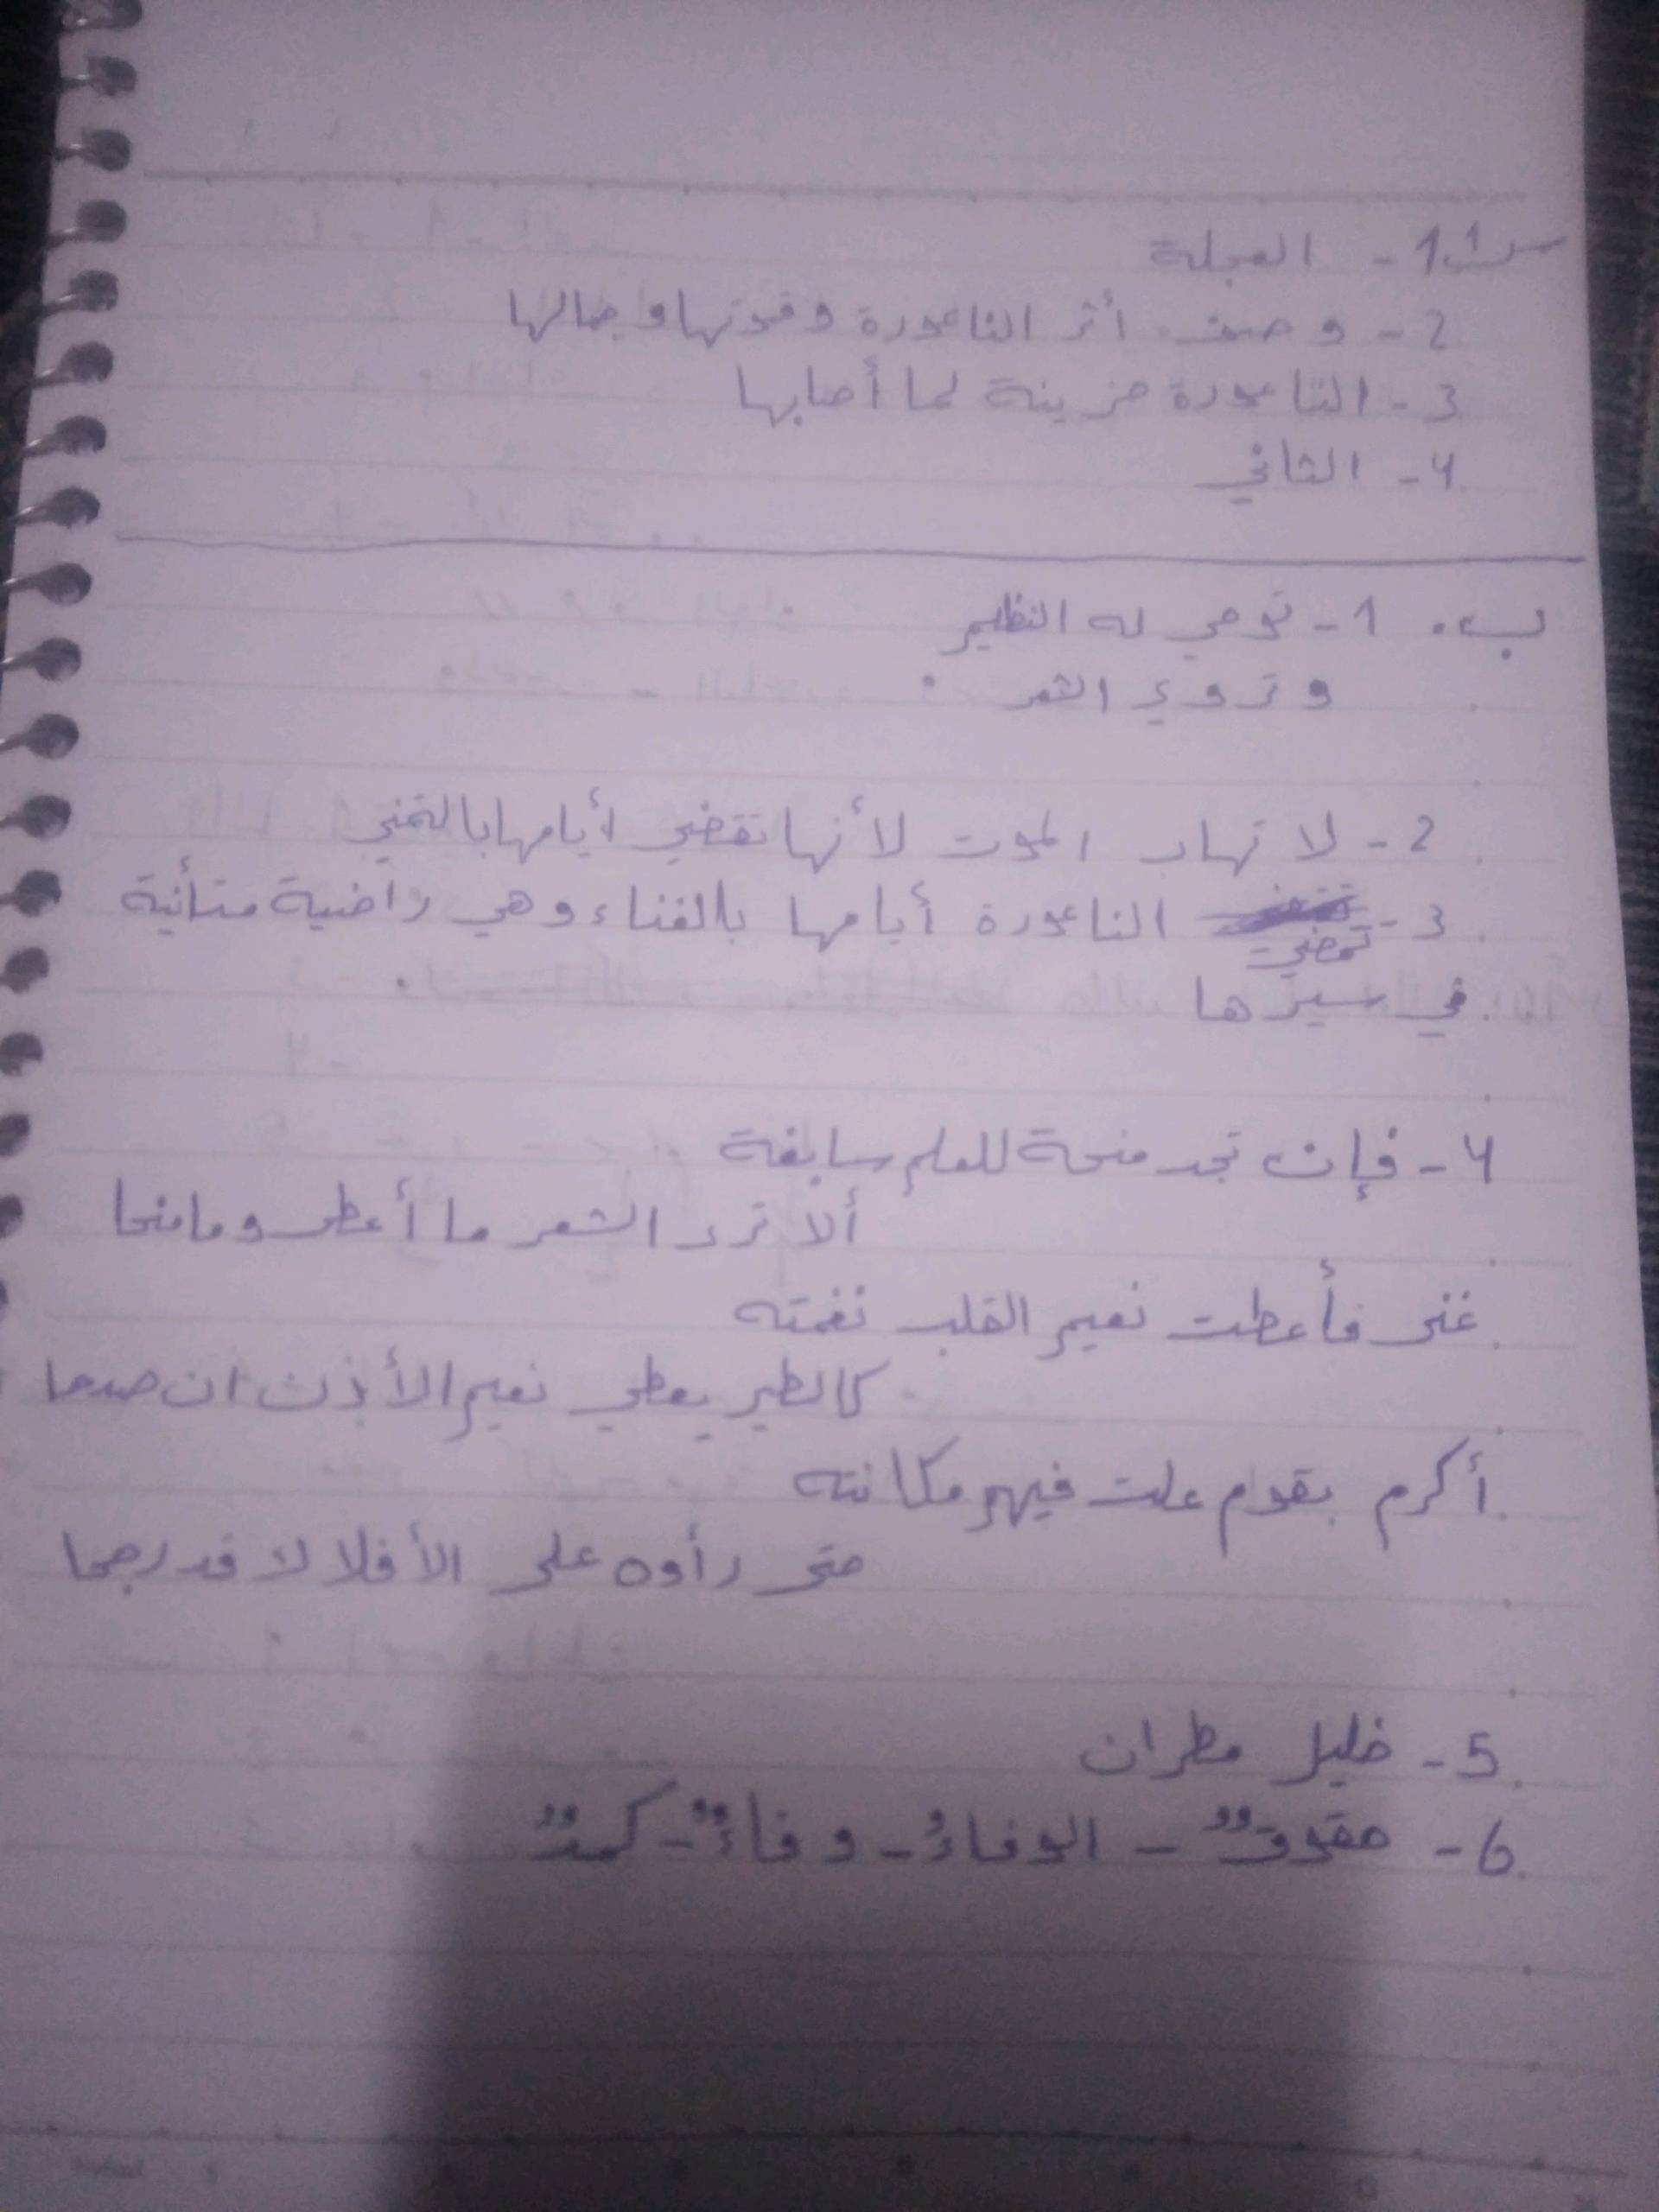 س1. 1- العجلة
2- وصف أثر الناعورة وقوتها وجمالها
3- الناعورة حزينة لما أصابها
4- الثاني
ب. 1- توحي له النظيم
وتروي الشعر
2- لا تهاب الموت لأنها تقضي أيامها بالتمني
3- تمضي الناعورة أيامها بالغناء وهي راضية متأنية
في سيرها
4- فإن تجد منحة للعلم سابغة
ألا ترى الشعر ما أعطى وما منحا
غنى فأعطت نعيم القلب نغمته
كالطير يعطي نعيم الأذن ان صدحا
أكرم بقوم علت فيهم مكانته
حتى رأوه على الأفلاك قد رجحا
5- خليل مطران
6- حقوقٌ - الوفاءُ - وفاءٌ - كمدٌ